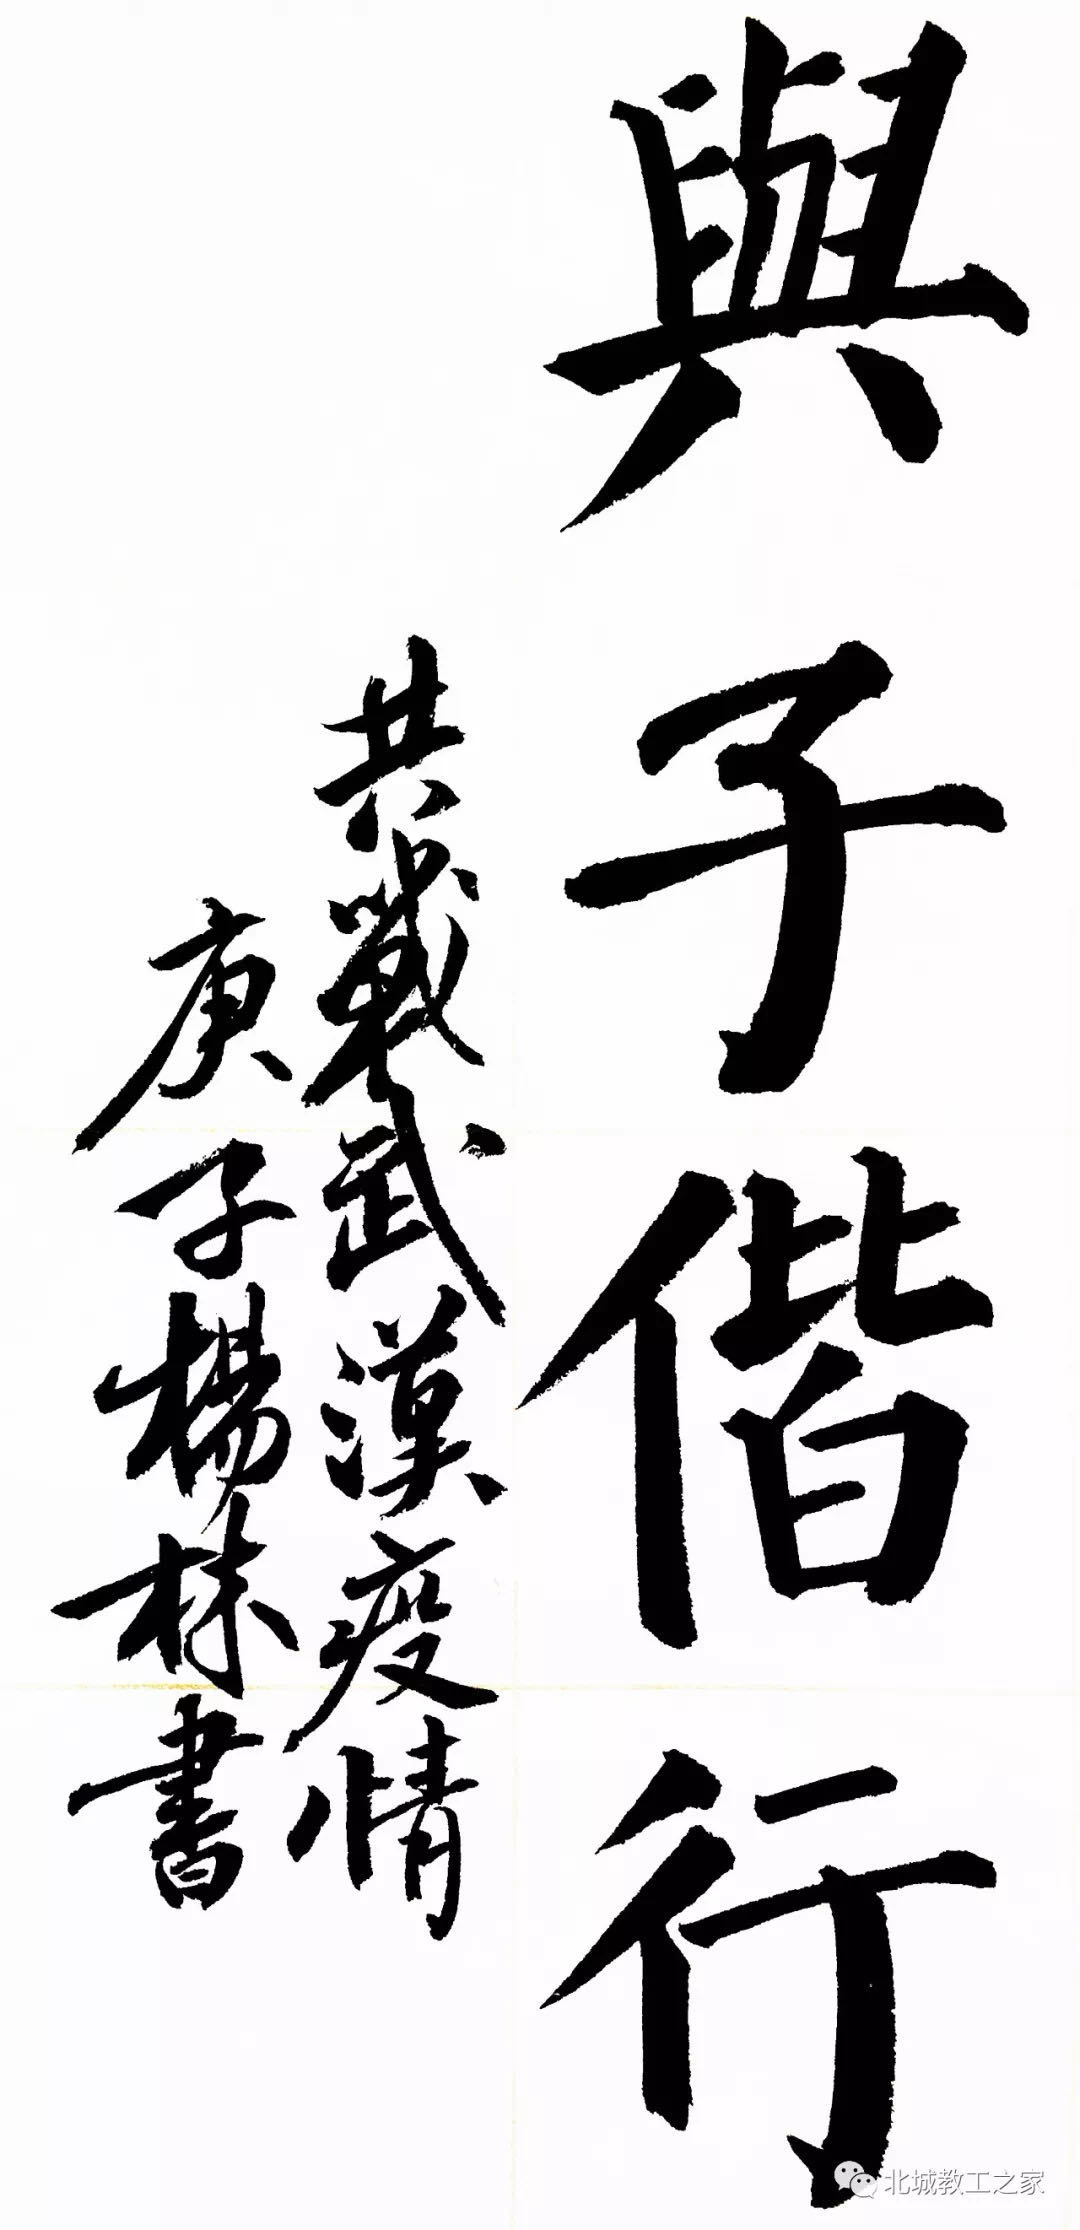 與子偕行
共戰武漢疫情
庚子楊林書
北城教工之家